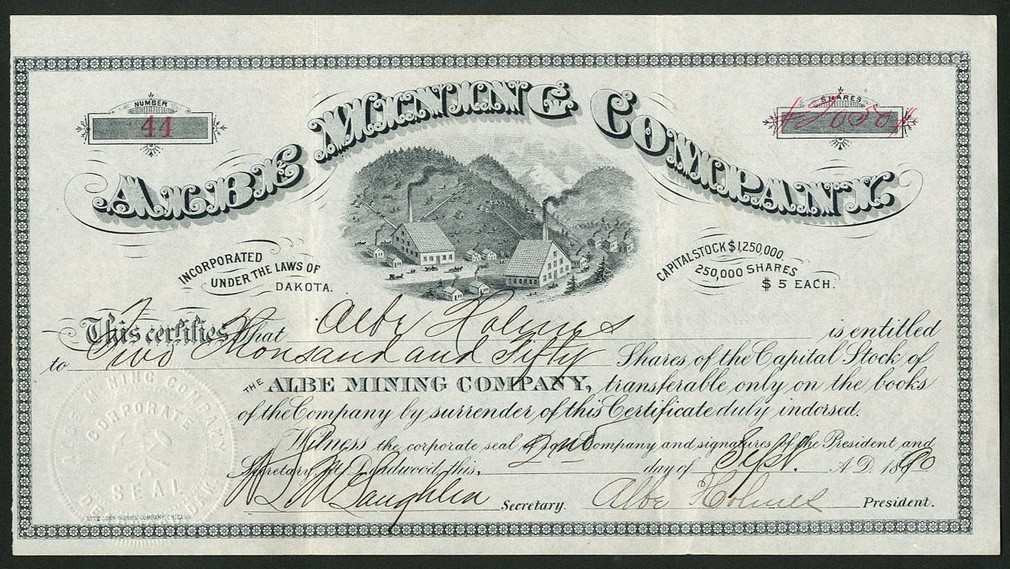 NUMBER
44
SHARES
#2050#
ALBE MINING COMPANY.
INCORPORATED
UNDER THE LAWS OF
DAKOTA.
CAPITAL STOCK $1,250,000.
250,000 SHARES
$5 EACH.
This certifies that Albe Holmes is entitled
to Two Thousand and Fifty Shares of the Capital Stock of
THE ALBE MINING COMPANY, transferable only on the books
of the Company by surrender of this Certificate duly indorsed.
Witness the corporate seal of said Company and signatures of the President and
Secretary at Deadwood, this, 2nd day of Sept. A.D. 1890
W L McLaughlin Secretary. Albe Holmes President.
ALBE MINING COMPANY
CORPORATE
SEAL